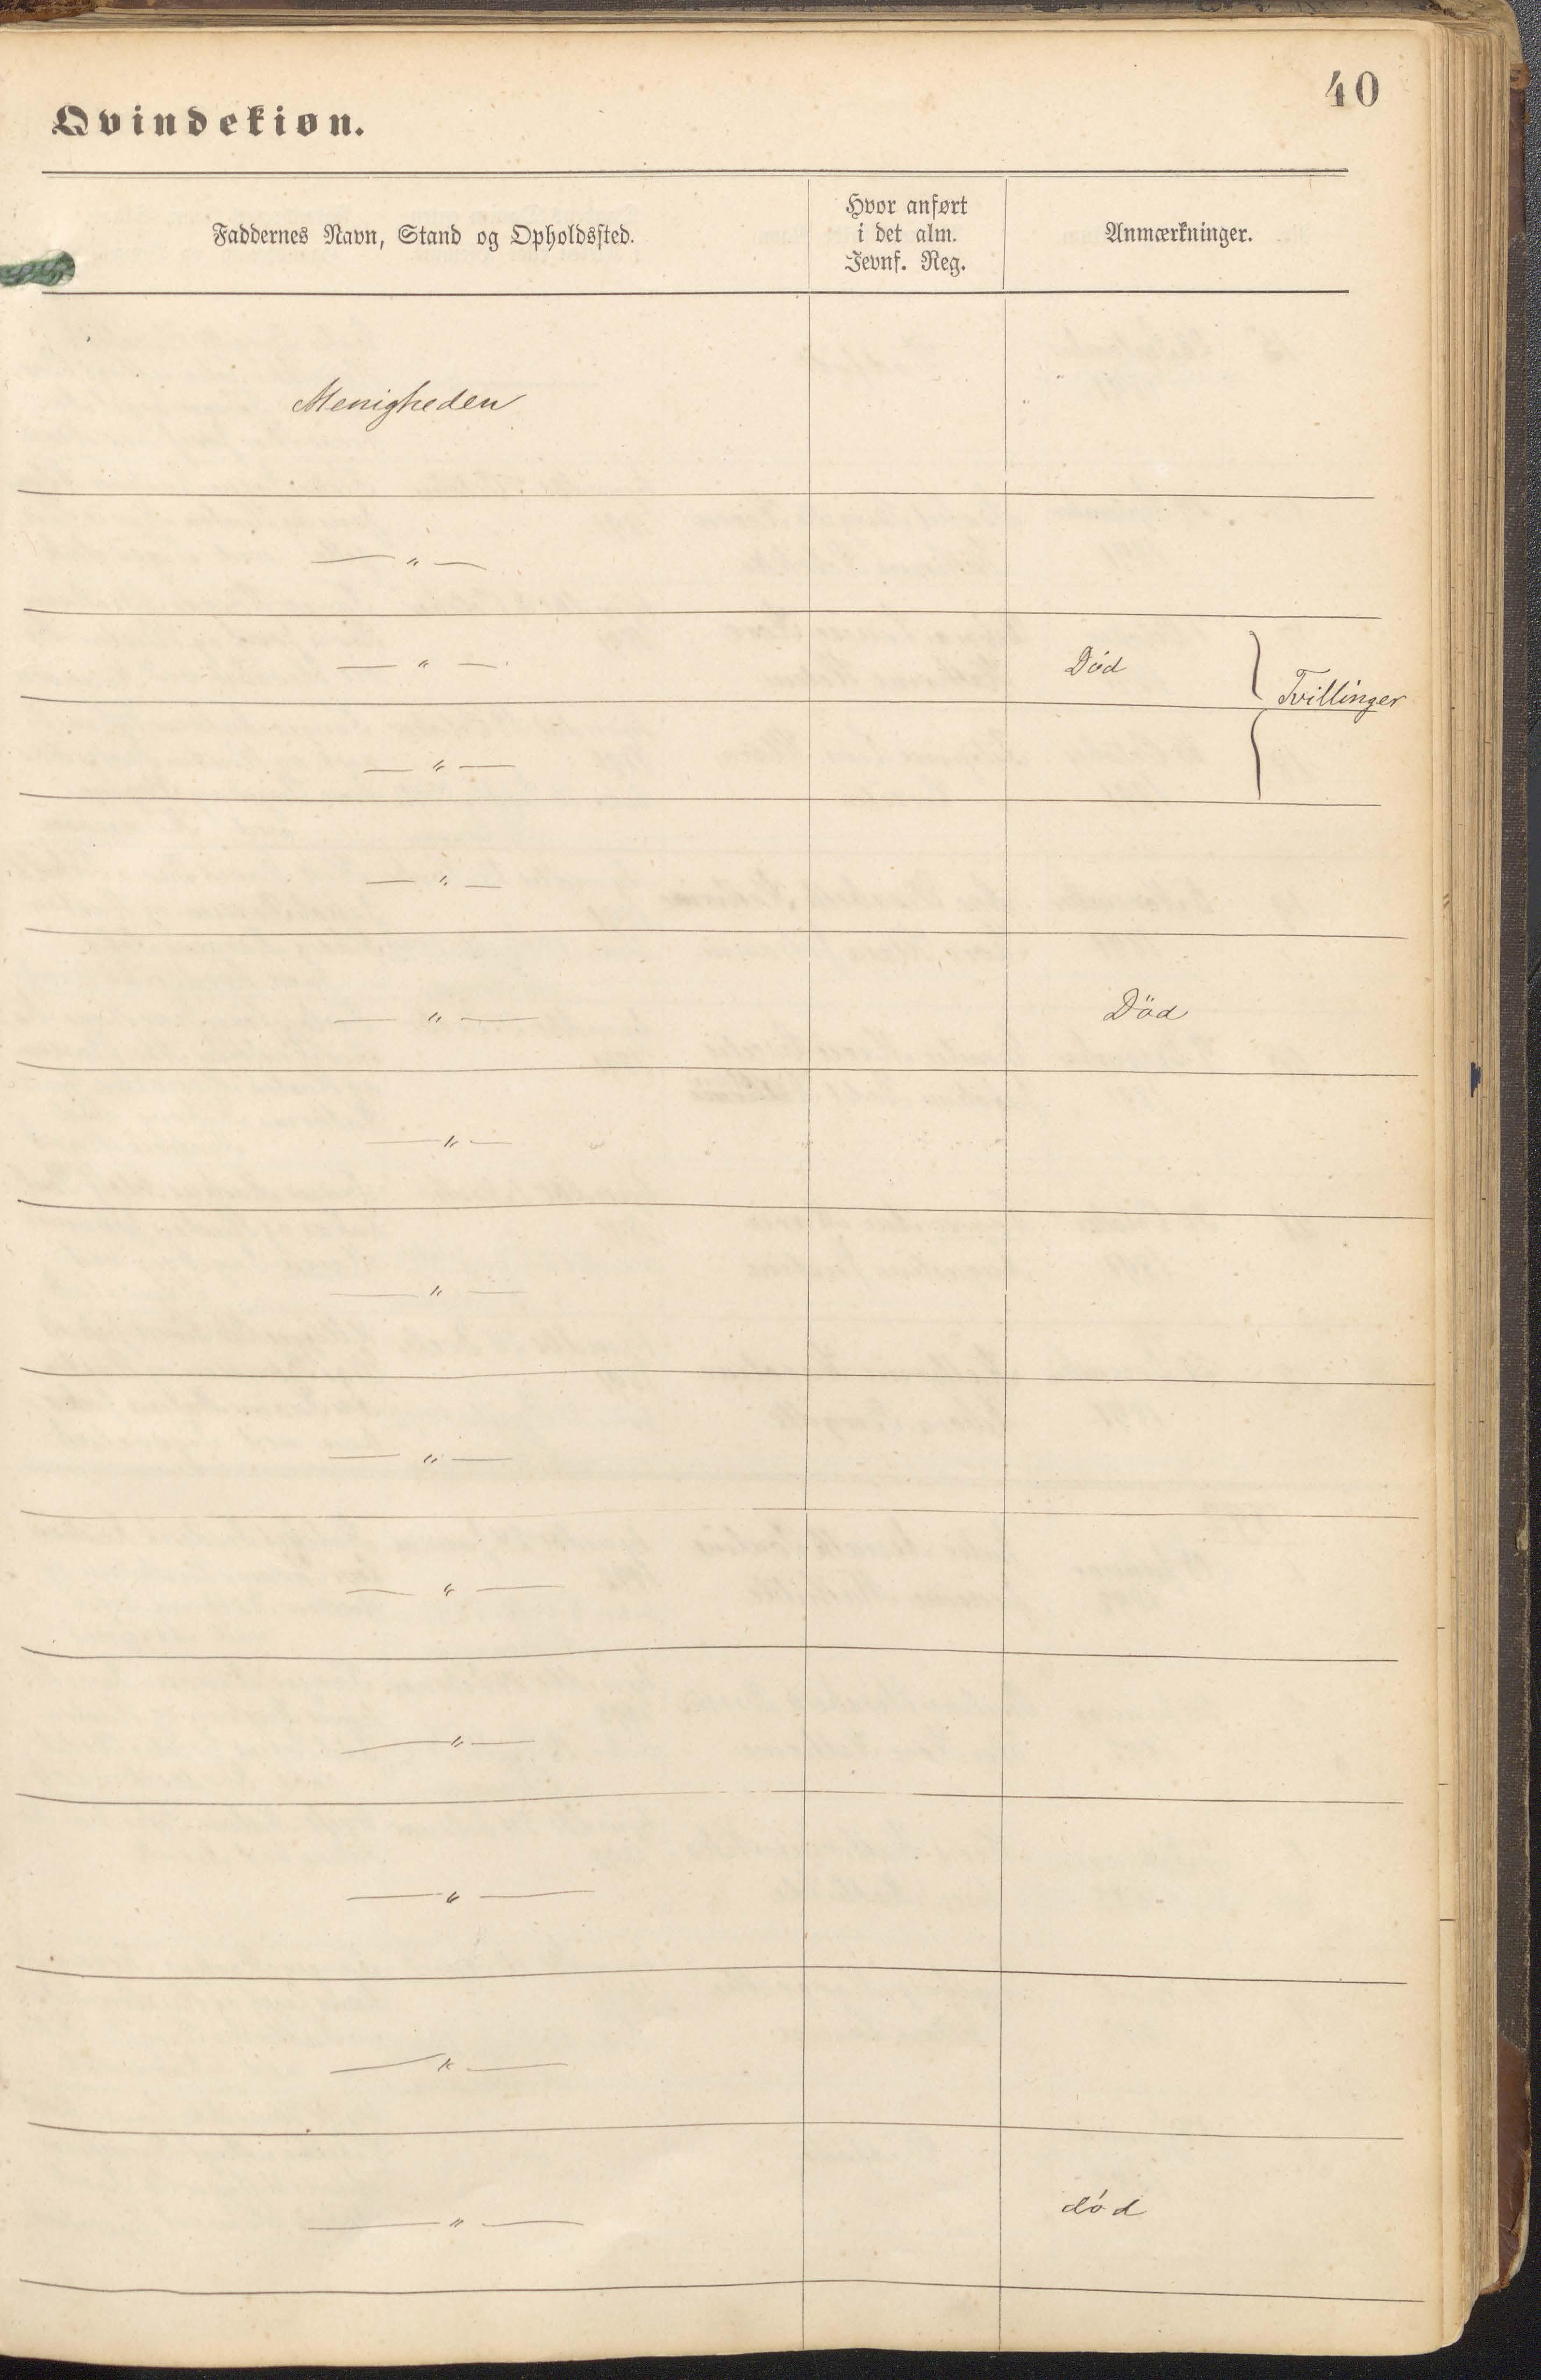 40
Qvindekiøn.
Faddernes Navn, Stand og Opholdssted.
Hvor anført
i det alm.
Jevnf. Reg.
Anmærkninger.
Menigheden
— " —
— " — Død
Tvillinger
— " —
— " —
— " — Död
— " —
— " —
— " —
— " —
— " —
— " —
— " —
— " — död